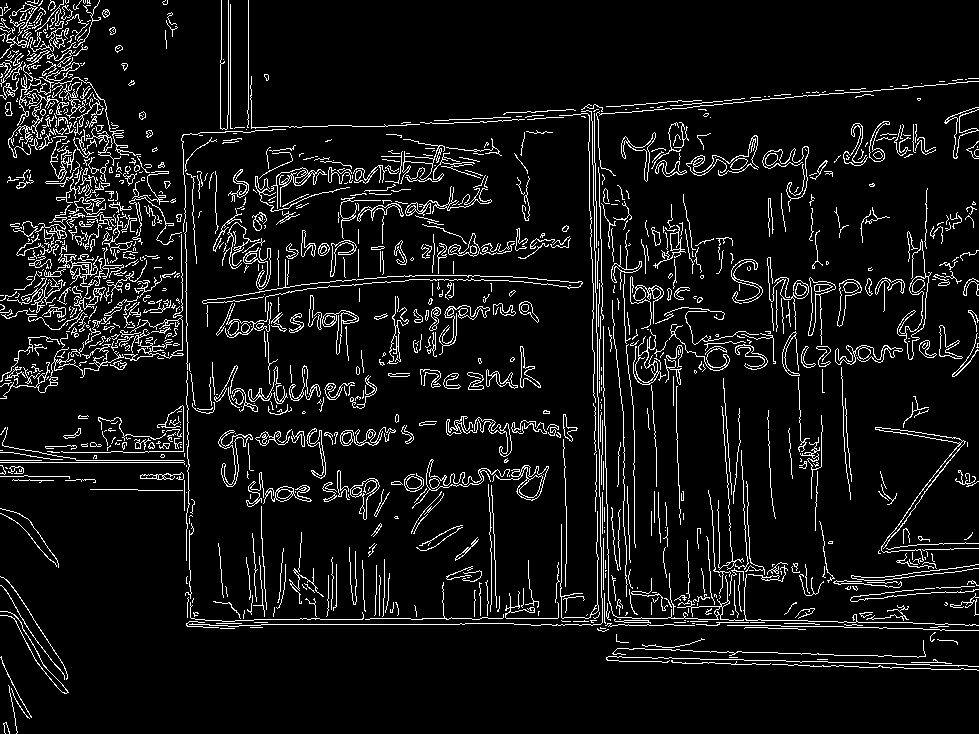 supermarket
toy shop - s. z zabawkami
book shop - księgarnia
butcher's - rzeźnik
greengrocer's - warzywniak
shoe shop - obuwniczy
Tuesday, 26th
Topic: Shopping
03 (czwartek)